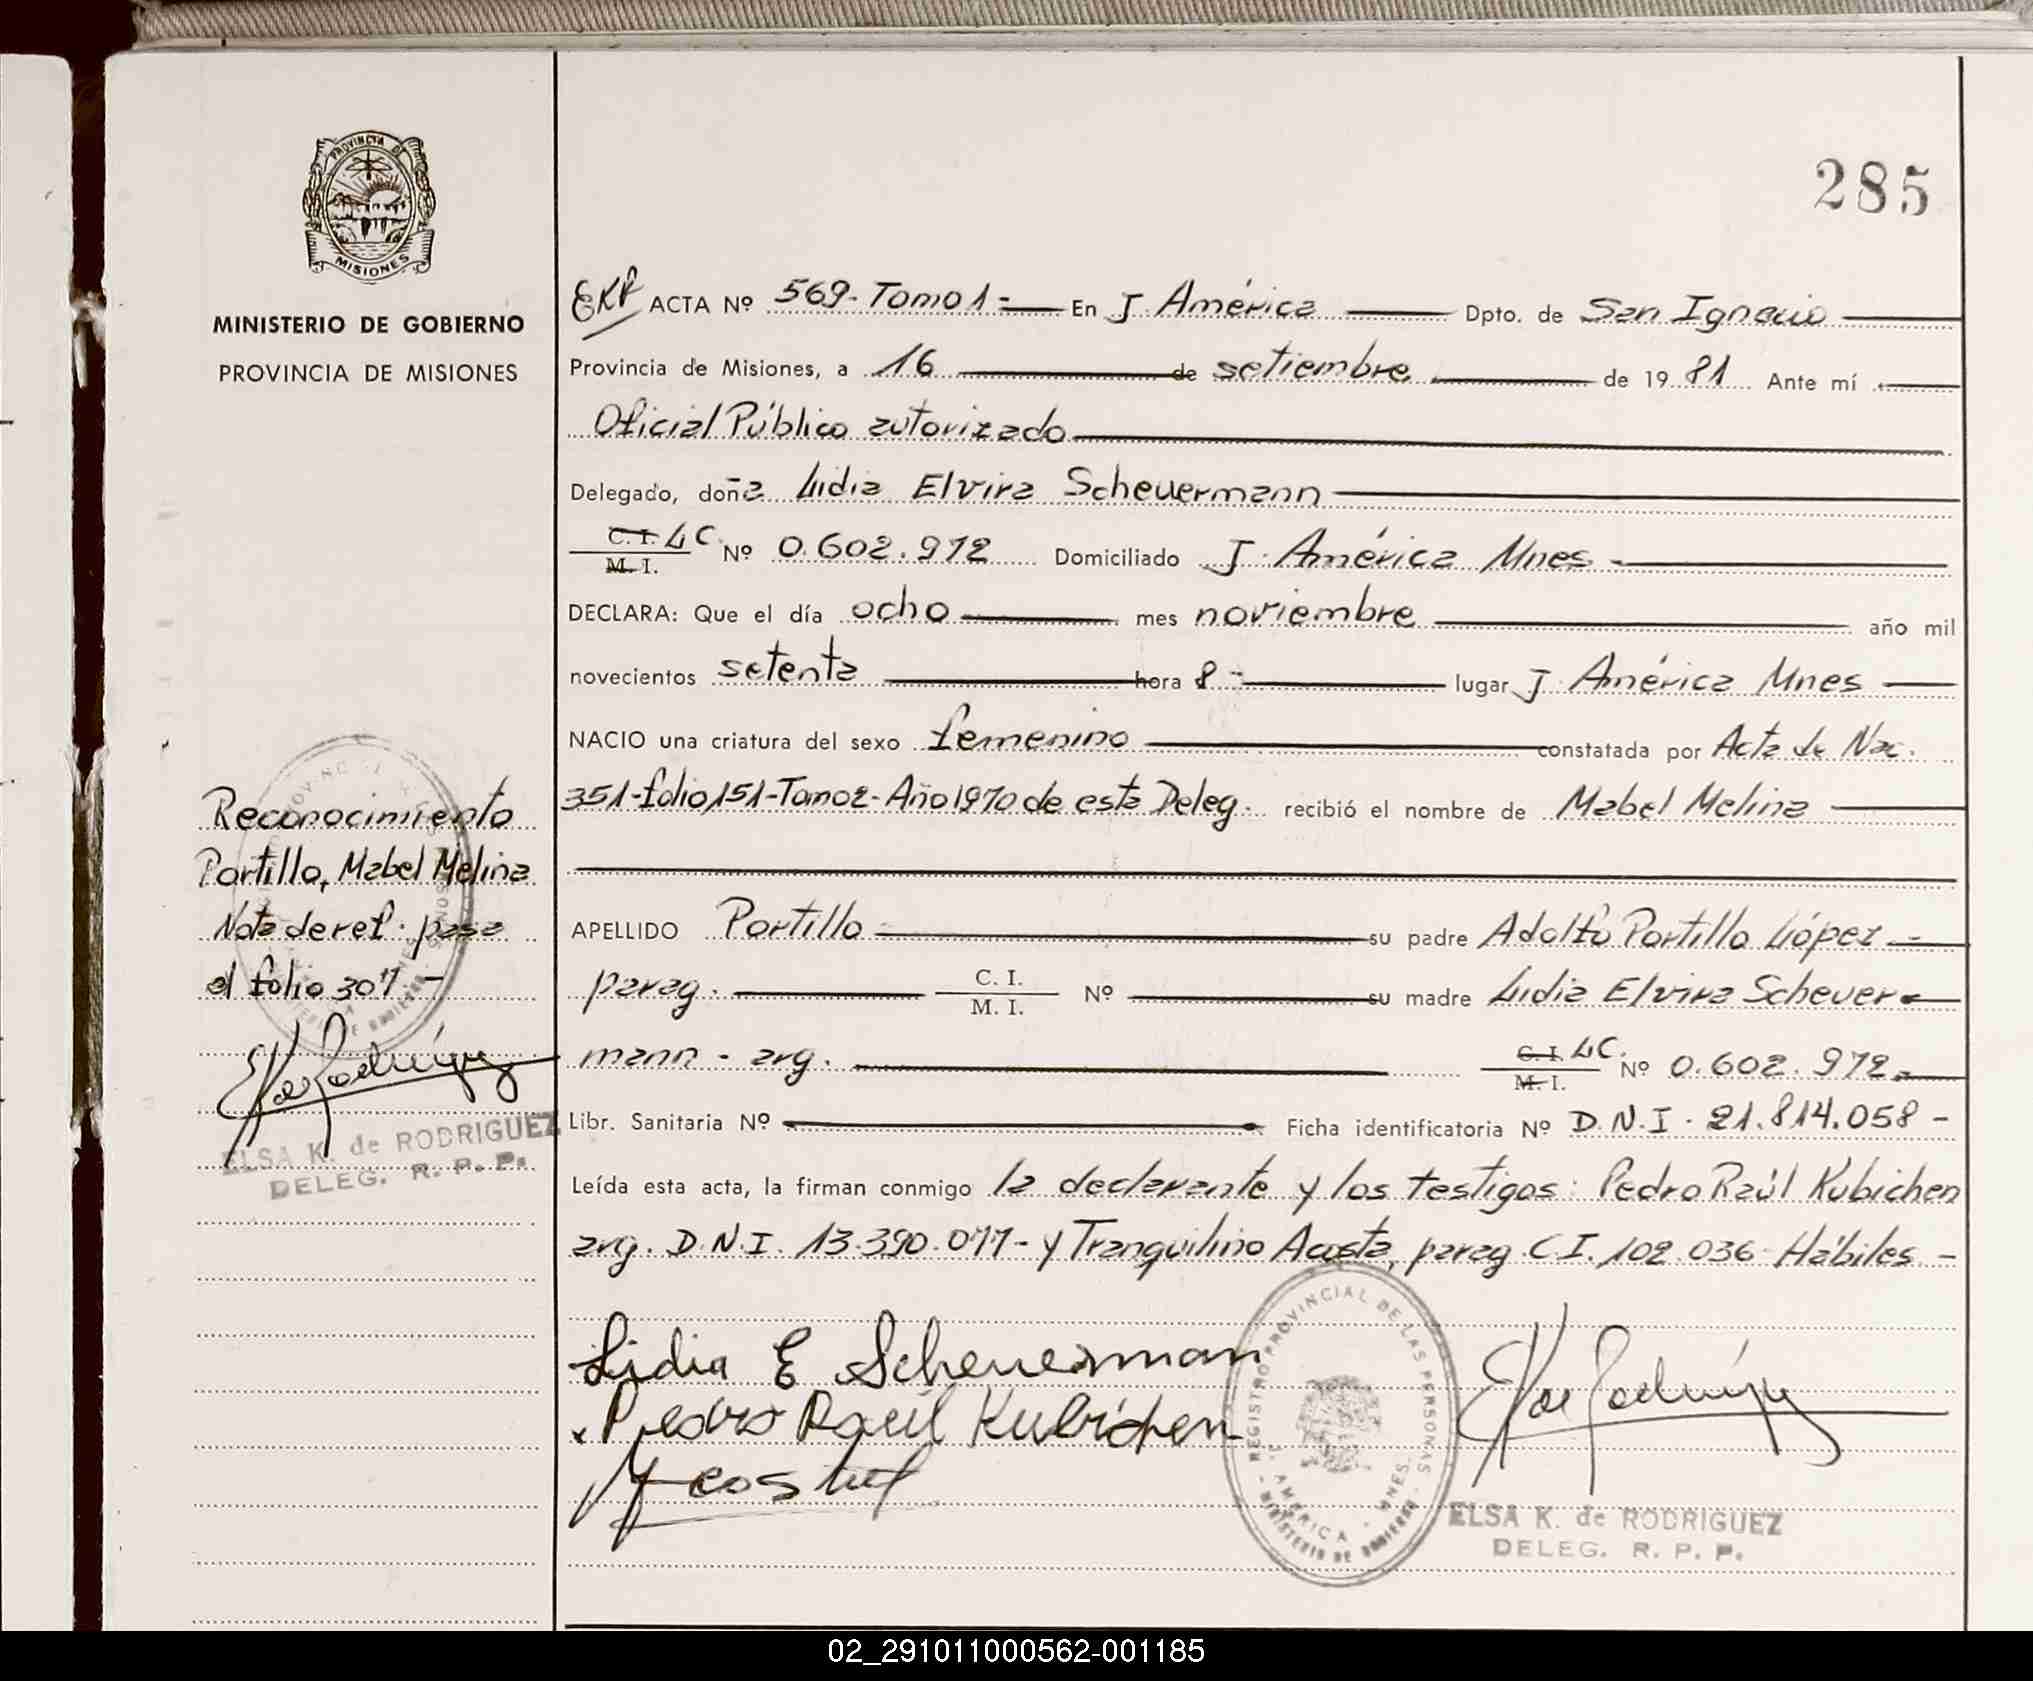 285
PROVINCIA DE
MISIONES
MINISTERIO DE GOBIERNO
PROVINCIA DE MISIONES
ACTA Nº 569-Tomo 1 - En J. América Dpto. de San Ignacio
Provincia de Misiones, a 16 de setiembre de 1981 Ante mí
Oficial Público autorizado
Delegado, doña Lidia Elvira Scheuermann
C. I. LC.
M. I. Nº 0.602.972 Domiciliado J. América Mnes -
DECLARA: Que el día ocho mes noviembre año mil
novecientos setenta hora 8 - lugar J. América Mnes
NACIO una criatura del sexo femenino constatada por Acta de Nac.
351-folio 151-Tomo 2-Año 1970 de esta Deleg. recibió el nombre de Mabel Melina
APELLIDO Portillo su padre Adolfo Portillo López -
parag. C. I.
M. I. Nº su madre Lidia Elvira Scheuer-
mann - arg. C. I. LC.
M. I. Nº 0.602.972
Libr. Sanitaria Nº Ficha identificatoria Nº D.N.I. 21.814.058 -
Leída esta acta, la firman conmigo la declarante y los testigos: Pedro Raúl Kubichen
arg. D.N.I. 13.390.077 - y Tranquilino Acosta, parag. C.I. 102.036- Hábiles. -
Reconocimiento
Portillo, Mabel Melina
Nota de ref. pasa
al folio 307 -
ELSA K. de RODRIGUEZ
DELEG. R. P. P.
Lidia E Scheuerman
Pedro Raúl Kubichen
Acosta
REGISTRO PROVINCIAL DE LAS PERSONAS
J. AMERICA - MNES.
MINISTERIO DE GOBIERNO
ELSA K. de RODRIGUEZ
DELEG. R. P. P.
02_291011000562-001185